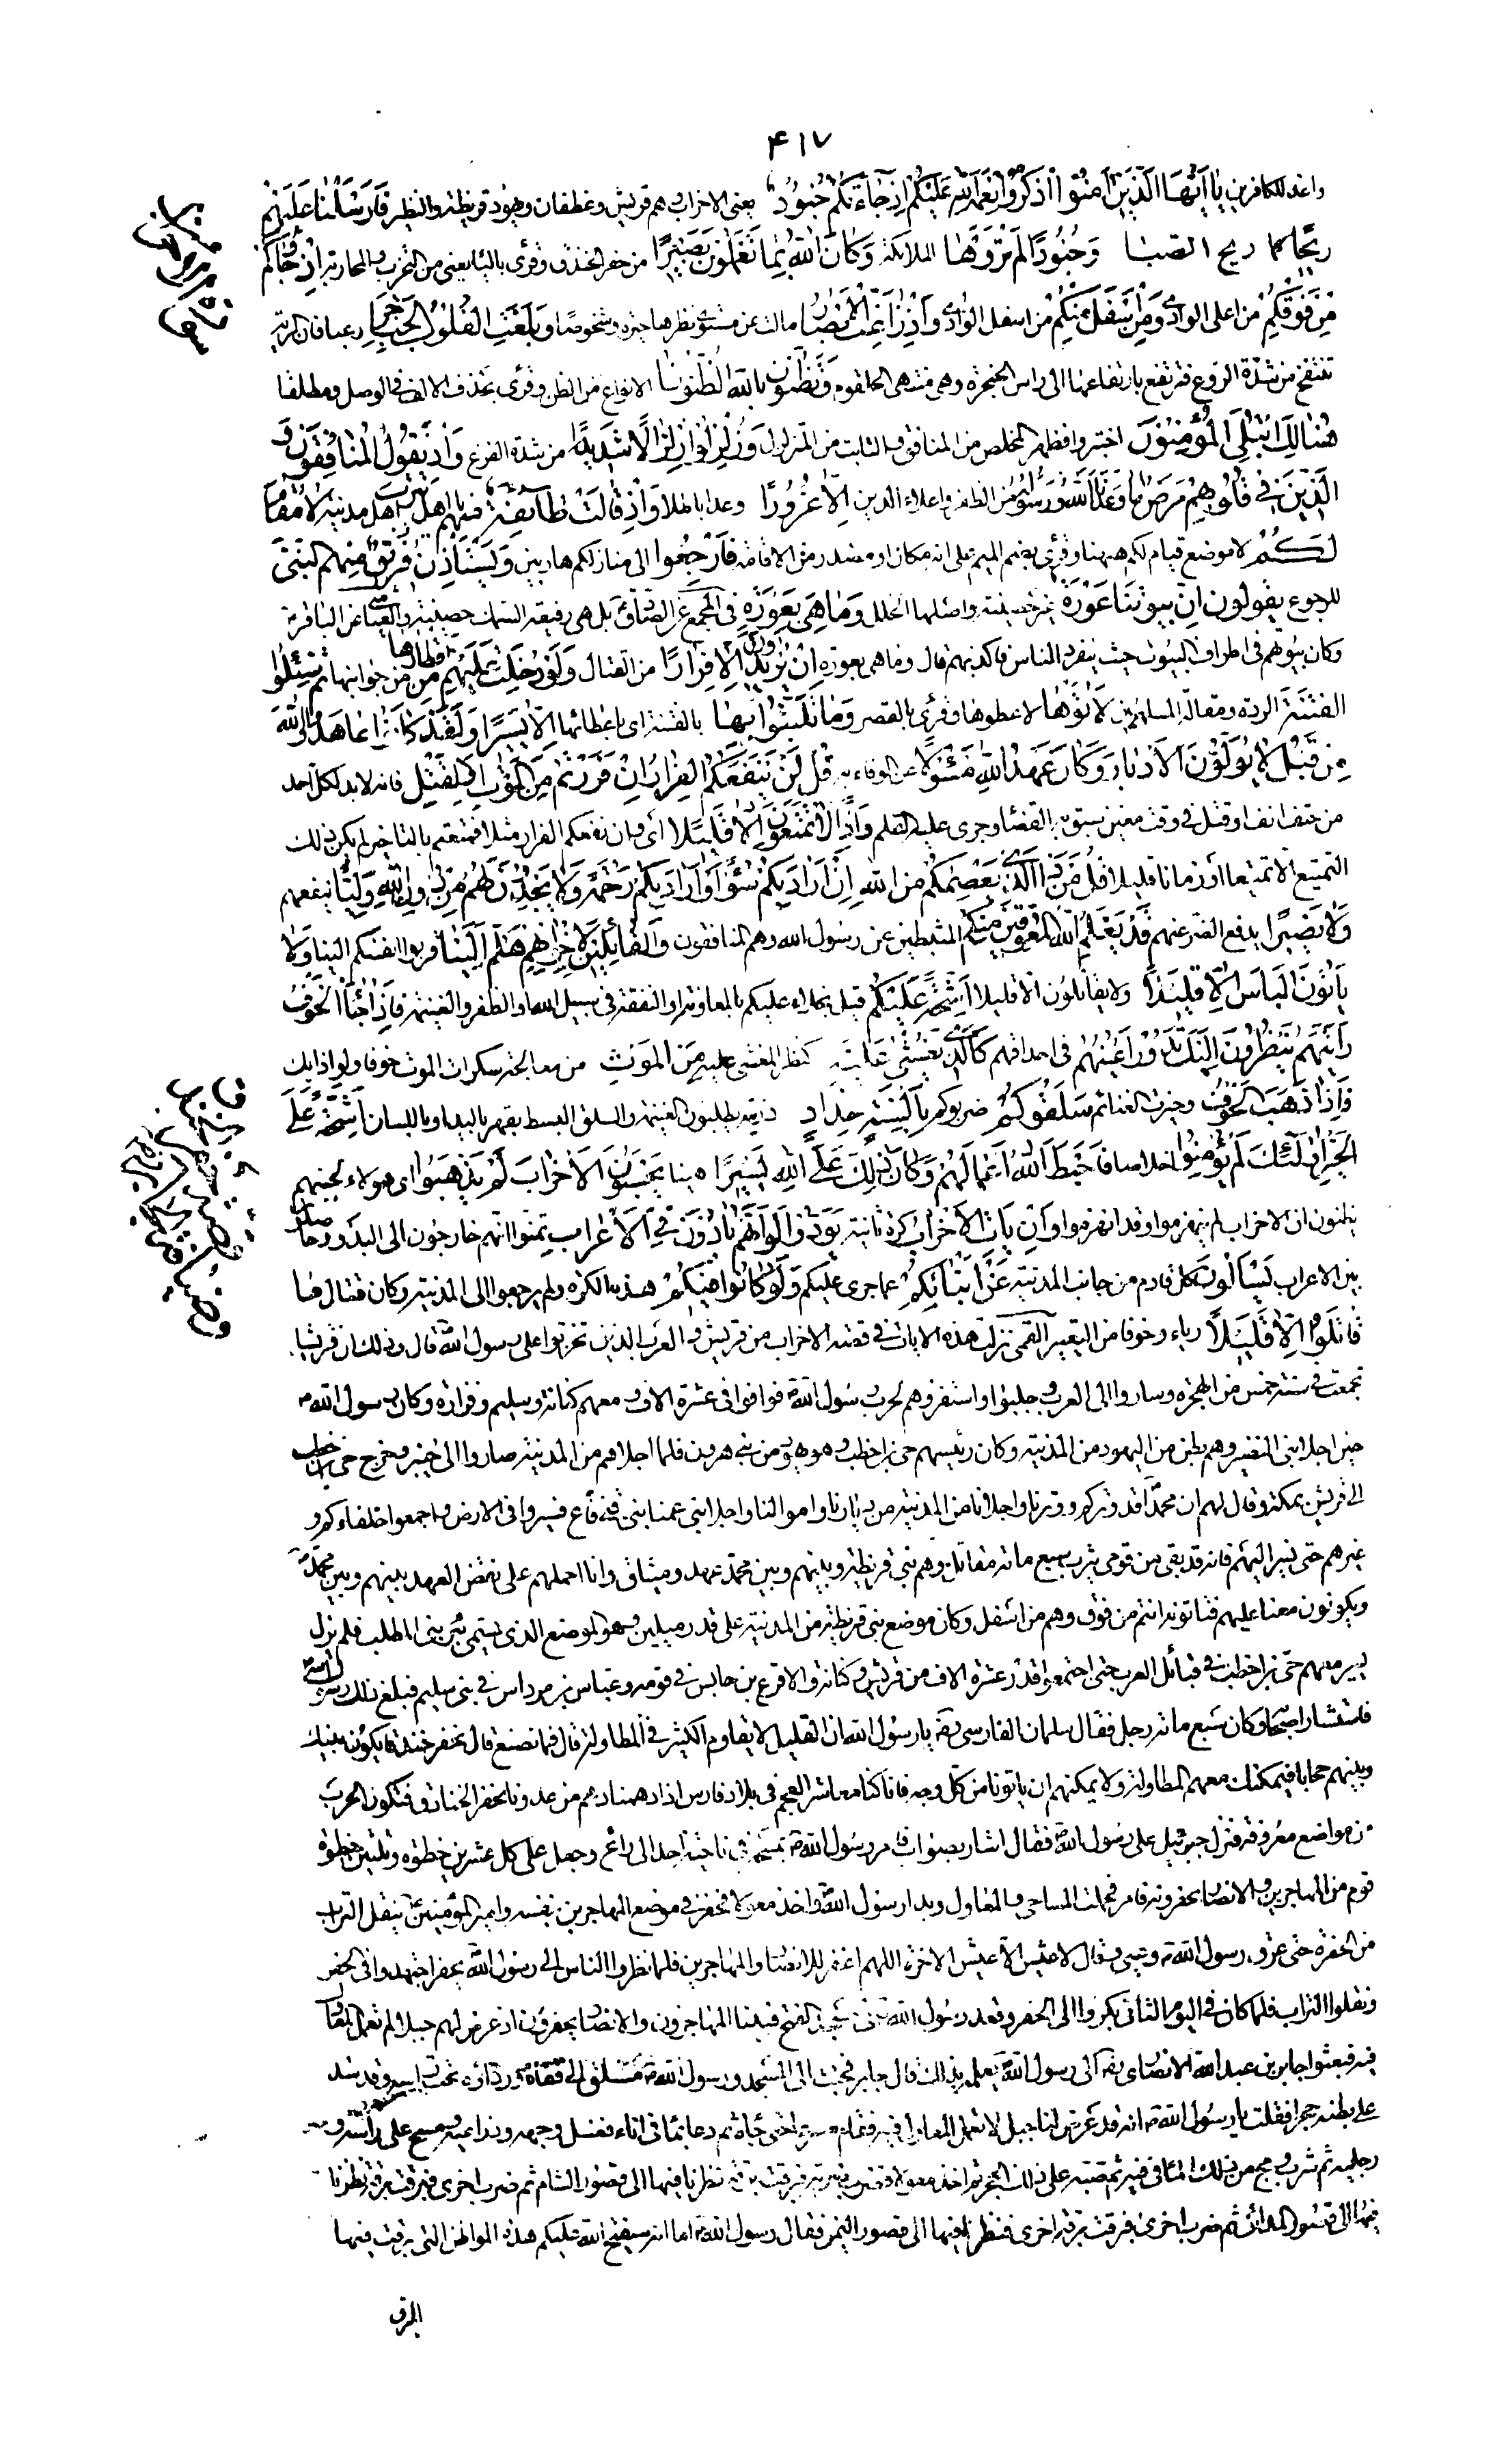 ۴۱۷
واعد للكافرين يا ايها الذين امنوا اذكروا نعمة الله عليكم اذ جاءتكم جنود يعنى الاحزاب وهم قريش وغطفان ويهود قريظة والنضير فارسلنا عليهم
ريحا كما ريح الصبا وجنودا لم تروها الملائكة وكان الله بما تعملون بصيرا من حفر الخندق وقرئ بالياء يعنى من التحزب والمحاربة اذ جاؤكم
من فوقكم من اعلى الوادى ومن اسفل منكم من اسفل الوادى واذ زاغت الابصار مالت عن مستوى نظرها حيرة وشخوصا وبلغت القلوب الحناجر رعبا فان الرية
تنتفخ من شدة الروع فترتفع بارتفاعها الى راس الحنجرة وهى منتهى الحلقوم وتظنون بالله الظنونا الانواع من الظن وقرئ بحذف الالف فى الوصل ومطلقا
هنالك ابتلى المؤمنون اختبروا فظهر المخلص من المنافق والثابت من المتزلزل وزلزلوا زلزالا شديدا من شدة الفزع واذ يقول المنافقون و
الذين فى قلوبهم مرض ما وعدنا الله ورسوله من الظفر واعلاء الدين الا غرورا وعدا باطلا واذ قالت طائفة منهم يا اهل يثرب اهل مدينة لا مقام
لكم لا موضع قيام لكم ههنا وقرئ بضم الميم على انه مكان او مصدر من الاقامة فارجعوا الى منازلكم هاربين ويستاذن فريق منهم النبى
للرجوع يقولون ان بيوتنا عورة غير حصينة واصلها الخلل وما هى بعورة فى المجمع عن الصادق بل هى رفيعة السمك حصينة والعياشى عن الباقر
وكان بيوتهم فى اطراف البيوت حيث ينفرد الناس فاكذبهم قال وما هى بعورة ان يريدون الا فرارا من القتال ولو دخلت عليهم من اقطارها من جوانبها ثم سئلوا
الفتنة الردة ومقاتلة المسلمين لاتوها لاعطوها وقرئ بالقصر وما تلبثوا بها بالفتنة اى باعطائها الا يسيرا ولقد كانوا عاهدوا الله
من قبل لا يولون الادبار وكان عهد الله مسئولا عن الوفاء به قل لن ينفعكم الفرار ان فررتم من الموت او القتل فانه لا بد لكل احد
من حتف انف او قتل فى وقت معين سبق به القضاء وجرى عليه القلم واذا لا تمتعون الا قليلا اى وان نفعكم الفرار مثلا فمتعتم بالتاخير لم يكن ذلك
التمتيع الا تمتيعا او زمانا قليلا قل من ذا الذى يعصمكم من الله ان اراد بكم سوء او اراد بكم رحمة ولا يجدون لهم من دون الله وليا ينفعهم
ولا نصيرا يدفع الضر عنهم قد يعلم الله المعوقين منكم المثبطين عن رسول الله وهم المنافقون والقائلين لاخوانهم هلم الينا قربوا انفسكم الينا ولا
ياتون الباس الا قليلا ولا يقاتلون الا قليلا اشحة عليكم قيل بخلاء عليكم بالمعاونة او النفقة فى سبيل الله او الظفر والغنيمة فاذا جاء الخوف
رايتهم ينظرون اليك تدور اعينهم فى احداقهم كالذى يغشى عليه كنظر المغشى عليه من الموت من معالجة سكرات الموت خوفا ولواذا بك
فاذا ذهب الخوف وحيزت الغنائم سلقوكم ضربوكم بالسنة حداد ذربة يطلبون الغنيمة والسلق البسط بقهر باليد او باللسان اشحة على
الخير اولئك لم يؤمنوا اخلاصا فاحبط الله اعمالهم وكان ذلك على الله يسيرا هينا يحسبون الاحزاب لم يذهبوا اى هؤلاء لجبنهم
يظنون ان الاحزاب لم ينهزموا وقد انهزموا وان يات الاحزاب كرة ثانية يودوا لو انهم بادون فى الاعراب تمنوا انهم خارجون الى البدو وحاصلون
بين الاعراب يسالون كل قادم من جانب المدينة عن انبائكم عما جرى عليكم ولو كانوا فيكم هذه الكرة ولم يرجعوا الى المدينة وكان قتال ما
قاتلوا الا قليلا رياء وخوفا من التعيير القمى نزلت هذه الايات فى قصة الاحزاب من قريش والعرب الذين تحزبوا على رسول الله قال وذلك ان قريشا
تجمعت فى سنة خمس من الهجرة وساروا الى العرب وجلبوا واستنفروهم لحرب رسول الله فوافوا فى عشرة الاف ومعهم كنانة وسليم وفزارة وكان رسول الله
حين اجلا بنى النضير وهم بطن من اليهود من المدينة وكان رئيسهم حى بن اخطب وهو يهودى من بنى هرون فلما اجلاهم من المدينة صاروا الى خيبر وخرج حى بن اخطب
الى قريش بمكة وقال لهم ان محمدا قد وتركم ووترنا واجلانا من المدينة من ديارنا واموالنا واجلا بنى عمنا بنى قينقاع فسيروا فى الارض واجمعوا حلفاءكم و
غيرهم حتى نسير اليهم فانه قد بقى من قومى بيثرب سبع مائة مقاتل وهم بنى قريظة وبينهم وبين محمد عهد وميثاق وانا احملهم على نقض العهد بينهم وبين محمد
ويكونون معنا عليهم فتاتونه انتم من فوق وهم من اسفل وكان موضع بنى قريظة من المدينة على قدر ميلين وهو الموضع الذى يسمى ببئر بنى المطلب فلم يزل
يسير معهم حى بن اخطب فى قبائل العرب حتى اجتمعوا قدر عشرة الاف من قريش وكنانة والاقرع بن حابس فى قومه وعباس بن مرداس فى بنى سليم فبلغ ذلك رسول الله
فاستشار اصحابه وكان سبع مائة رجل فقال سلمان الفارسى ره يا رسول الله ان القليل لا يقاوم الكثير فى المطاولة قال فما نصنع قال نحفر خندقا يكون بينك
وبينهم حجابا فيمكنك معهم المطاولة ولا يمكنهم ان ياتونا من كل وجه فانا كنا معاشر العجم فى بلاد فارس اذا دهمنا دهم من عدونا نحفر الخنادق فتكون الحرب
من مواضع معروفة فنزل جبرئيل على رسول الله فقال اشار بصواب فامر رسول الله بمسحه من ناحية احد الى راتج وجعل على كل عشرين خطوة وثلثين خطوة
قوم من المهاجرين والانصار يحفرونه فامر فحملت المساحى والمعاول وبدا رسول الله واخذ معولا فحفر فى موضع المهاجرين بنفسه وامير المؤمنين ينقل التراب
من الحفرة حتى عرق رسول الله وعيى وقال لا عيش الا عيش الاخرة اللهم اغفر للانصار والمهاجرين فلما نظر الناس الى رسول الله يحفر اجتهدوا فى الحفر
ونقلوا التراب فلما كان فى اليوم الثانى بكروا الى الحفر وقعد رسول الله فى مسجد الفتح فبينا المهاجرون والانصار يحفرون اذ عرض لهم جبل لم تعمل المعاول
فيه فبعثوا جابر بن عبد الله الانصارى ره الى رسول الله يعلمه بذلك قال جابر فجئت الى المسجد ورسول الله مستلق على قفاه وردائه تحت راسه وقد شد
على بطنه حجرا فقلت يا رسول الله انه قد عرض لنا جبل لا تعمل المعاول فيه فقام مسرعا حتى جاءه ثم دعا بماء فى اناء فغسل وجهه وذراعيه ومسح على راسه و
رجليه ثم شرب ومج من ذلك الماء فى فيه ثم صبه على ذلك الحجر ثم اخذ معولا فضرب ضربة فبرقت برقة نظرنا فيها الى قصور الشام ثم ضرب اخرى فبرقت برقة نظرنا
فيها الى قصور المدائن ثم ضرب اخرى فبرقت برقة اخرى فنظرنا فيها الى قصور اليمن فقال رسول الله اما انه سيفتح الله عليكم هذه المواطن التى برقت فيها
البرق